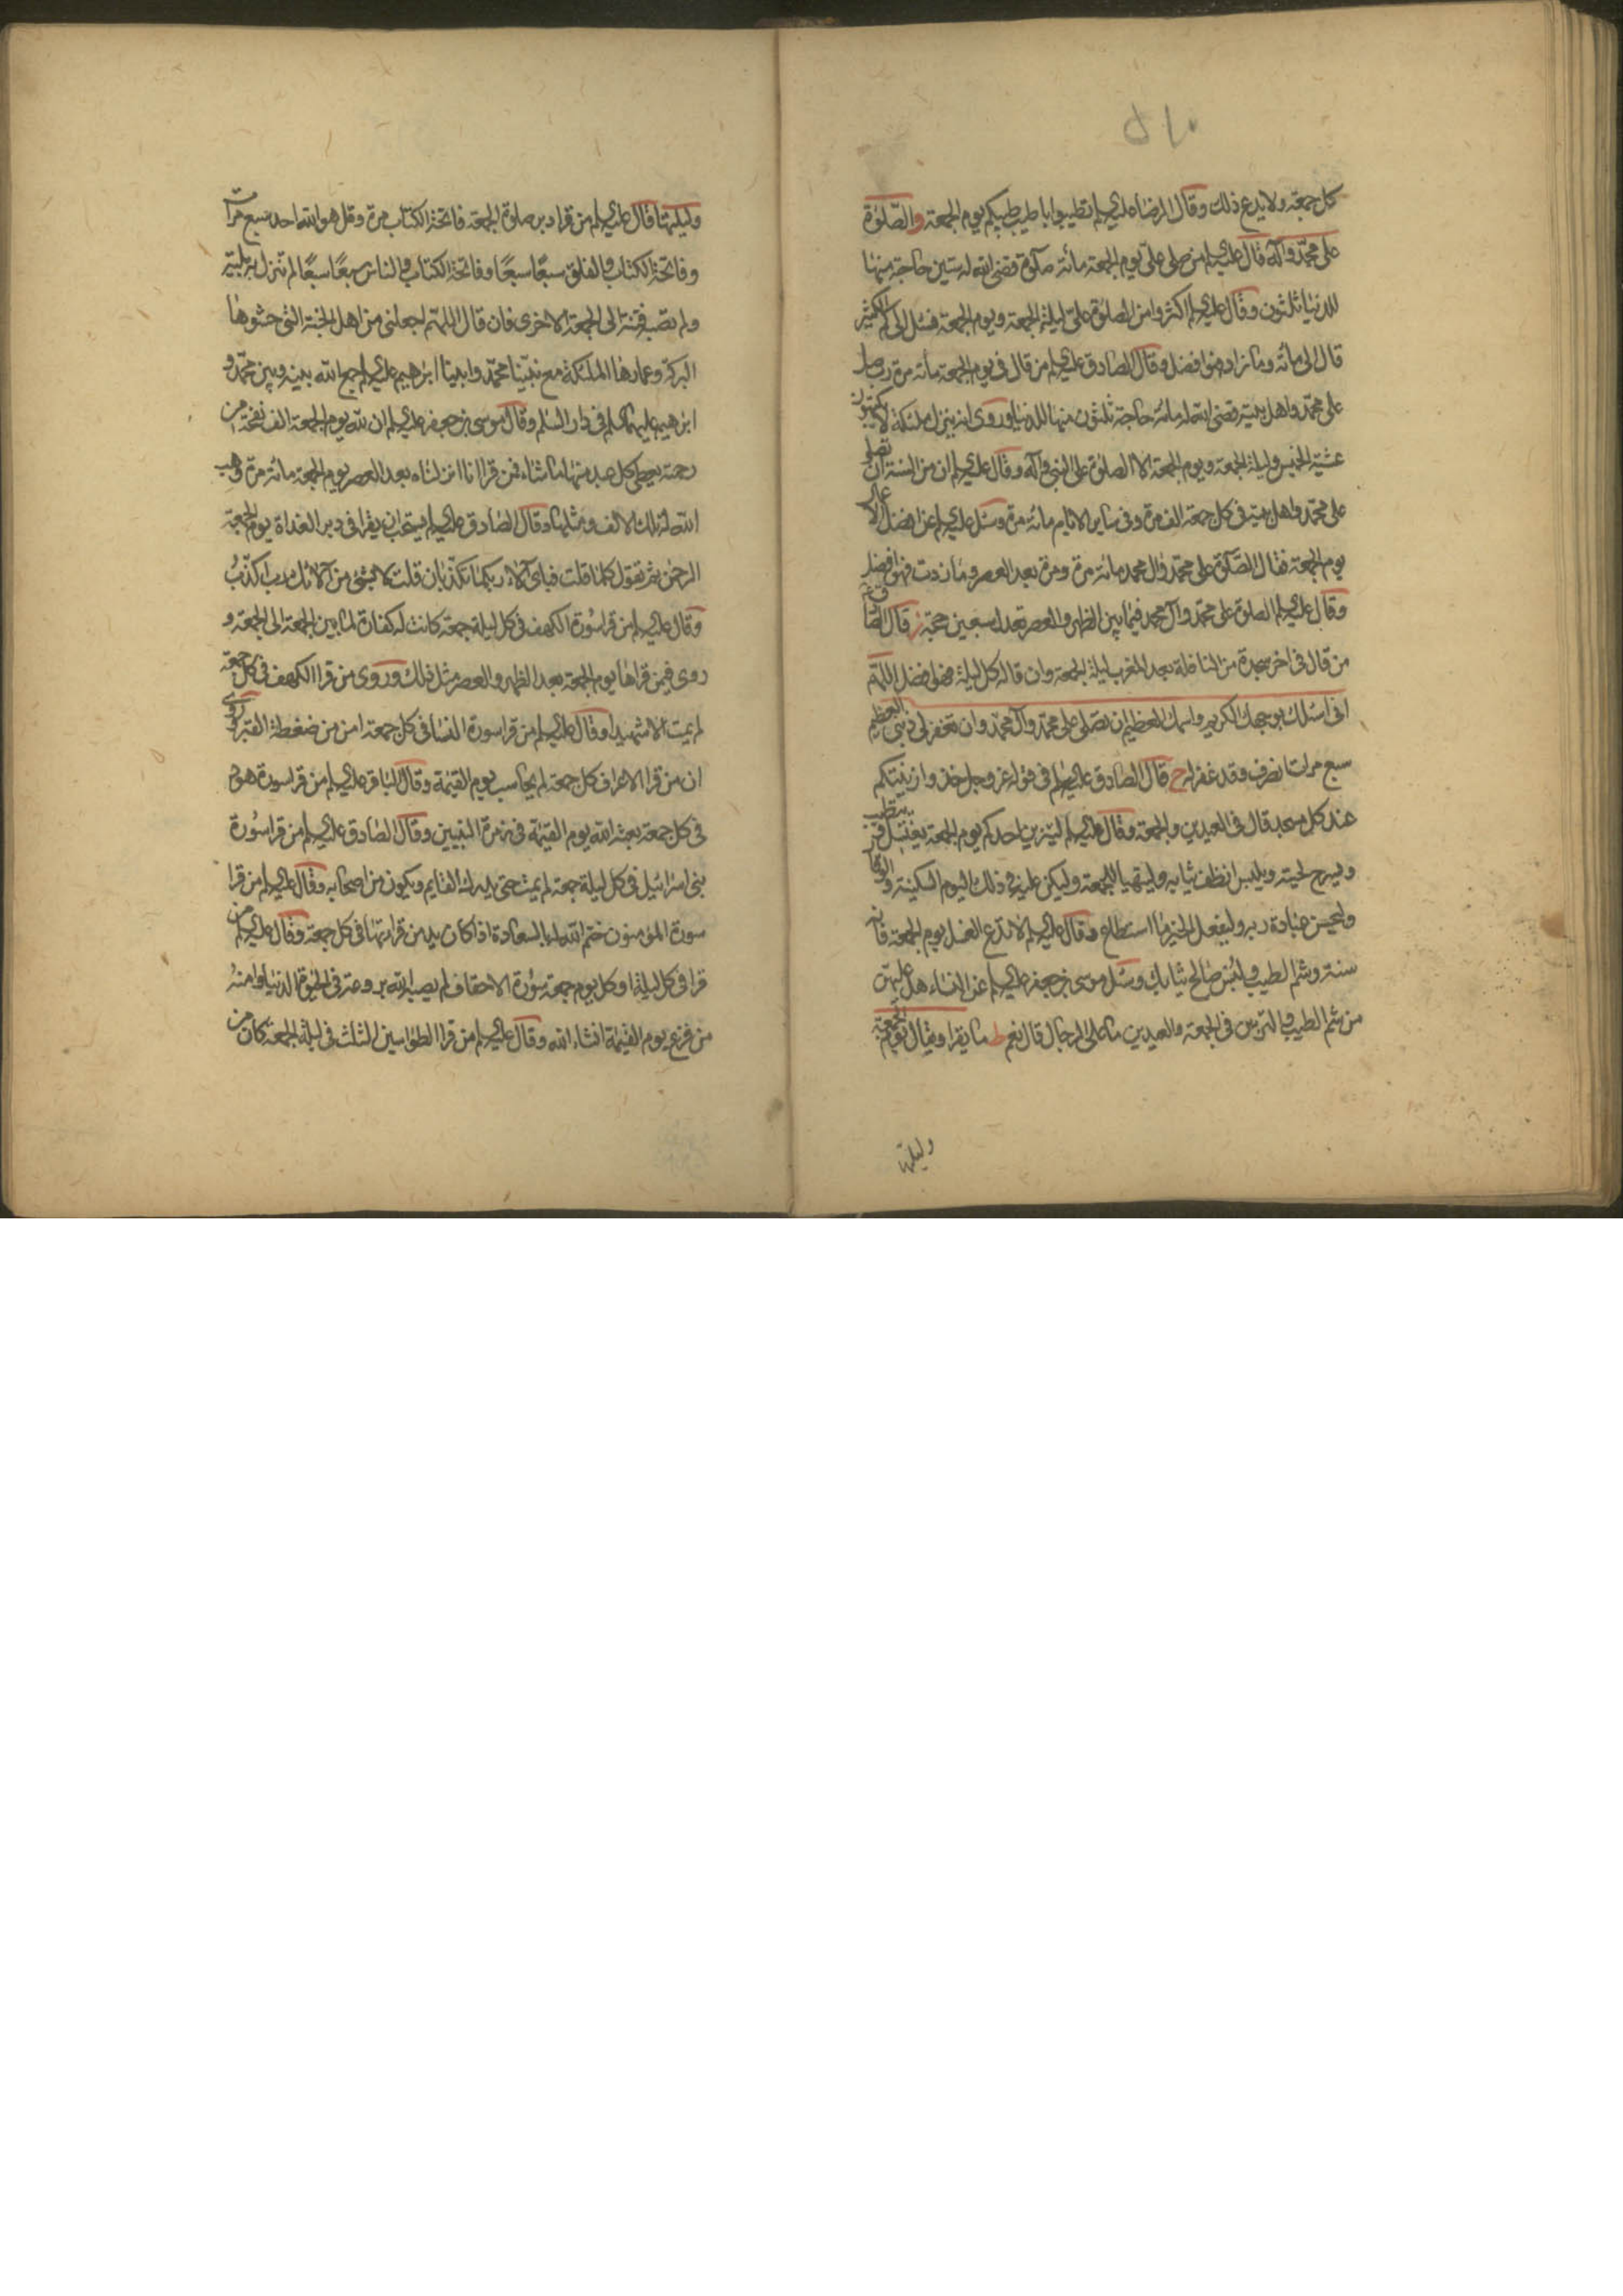 كل جمعة ولا يدع ذلك وقال الرضا عليه السلام تطيبوا باطيب طيبكم يوم الجمعة والصلوة
على محمد وآله قال عليه السلام من صلى علي يوم الجمعة مائة صلوة قضى الله له ستين حاجة منها
للدنيا ثلثون وقال عليه السلام اكثروا من الصلوة علي ليلة الجمعة ويوم الجمعة فسئل الى كم الكثير
قال الى مائة وما زاد فهو افضل وقال الصادق عليه السلام من قال في يوم الجمعة مائة مرة رب صل
على محمد واهل بيته قضى الله له مائة حاجة ثلثون منها للدنيا وروى انه ينزل ملئكة لا يكتبون
عشية الخميس وليلة الجمعة ويوم الجمعة الا الصلوة على النبي وآله وقال عليه السلام ان من السنة ان تصلى
على محمد واهل بيته في كل جمعة الف مرة وفي ساير الايام مائة مرة وسئل عليه السلام عن افضل الاعمال
يوم الجمعة فقال الصلوة على محمد وال محمد مائة مرة ومرة بعد العصر وما زدت فهو افضل
وقال عليه السلام الصلوة على محمد وآل محمد فيما بين الظهر والعصر تعدل سبعين حجة ز قال الصا
من قال في اخر سجدة من النافلة بعد المغرب ليلة الجمعة وان قاله كل ليلة فهو افضل اللهم
انى اسئلك بوجهك الكريم واسمك العظيم ان تصلى على محمد وآل محمد وان تغفر لى ذنبى العظيم
سبع مرات انصرف وقد غفر له ح قال الصادق عليه السلام في قوله عز وجل خذوا زينتكم
عند كل مسجد قال في العيدين والجمعة وقال عليه السلام ليتزين احدكم يوم الجمعة يغتسل ويتطيب
وليسرح لحيته ويلبس انظف ثيابه وليتهيا للجمعة وليكن عليه في ذلك اليوم السكينة والوقار
وليحسن عبادة ربه وليفعل الخير ما استطاع وقال عليه السلام لا تدع الغسل يوم الجمعة فانه
سنة وشم الطيب والبس صالح ثيابك وسئل موسى بن جعفر عليه السلام عن النساء هل عليهن
من شم الطيب والتزين في الجمعة والعيدين ما على الرجال قال نعم ط ما يقرا ويقال يوم الجمعة
وليلتها
وليلتها قال عليه السلام من قرا دبر صلوة الجمعة فاتحة الكتاب مرة وقل هو الله احد سبع مرات
وفاتحة الكتاب والفلق سبعًا سبعًا وفاتحة الكتاب والناس سبعًا سبعًا لم تنزل به بلية
ولم تصبه فتنة الى الجمعة الاخرى فان قال اللهم اجعلنى من اهل الجنة التى حشوها
البركة وعمارها الملئكة مع نبينا محمد وابينا ابرهيم عليه السلام جمع الله بينه وبين محمد و
ابرهيم عليهما السلام في دار السلم وقال موسى بن جعفر عليه السلام ان لله يوم الجمعة الف نفحة من
رحمته يعطى كل عبد منها ما شاء فمن قرا انا انزلناه بعد العصر يوم الجمعة مائة مرة وهب
الله له تلك الالف ومثلها وقال الصادق عليه السلام يستحب ان يقرا في دبر الغداة يوم الجمعة
الرحمن ثم تقول كلما قلت فباي آلاء ربكما تكذبان قلت لا بشئ من آلائك رب اكذب
وقال عليه السلام من قرا سورة الكهف في كل ليلة جمعة كانت له كفارة لما بين الجمعة الى الجمعة و
روى فيمن قراها يوم الجمعة بعد الظهر والعصر مثل ذلك وروى من قرا الكهف في كل جمعة
لم يمت الا شهيدا وقال عليه السلام من قرا سورة النسا في كل جمعة امن من ضغطة القبر وروى
ان من قرا الاعراف كل جمعة لم يحاسب يوم القيمة وقال الباقر عليه السلام من قرا سورة هود
في كل جمعة بعثه الله يوم القيمة في زمرة النبيين وقال الصادق عليه السلام من قرا سورة
بنى اسرائيل في كل ليلة جمعة لم يمت حتى يدرك القايم ويكون من اصحابه وقال عليه السلام من قرا
سورة المؤمنون ختم الله له بالسعادة اذا كان يدمن قراءتها في كل جمعة وقال عليه السلام من
قرا في كل ليلة او كل يوم جمعة سورة الاحقاف لم يصبه الله بروعة في الحيوة الدنيا وامنه
من فزع يوم القيمة انشاء الله وقال عليه السلام من قرا الطواسين الثلث في ليلة الجمعة كان من